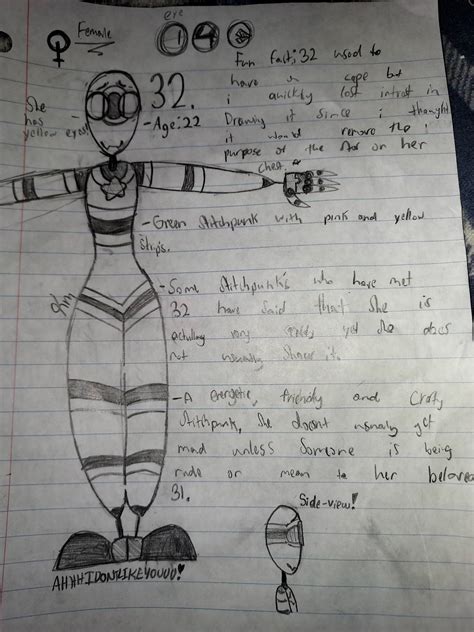 Female
eye
32.
-Age:22
She
has
yellow eyes!
Fun Fact; 32 used to
have a cape but
i quickly lost intrest in
Drawing it since i thought
it would remove the
purpose of the star on her
Chest
-Green Stitchpunk with pink and yellow
Strips.
-Some Stitchpunk's who have met
32 have said that she is
actually very yet she does
not usually show it.
-A energetic, friendly and Crafty
Stitchpunk, She doesnt usually get
mad unless Someone is being
rude or mean to her beloved
31.
Side-view!
AHHHIDONTLIKEYOUUU!